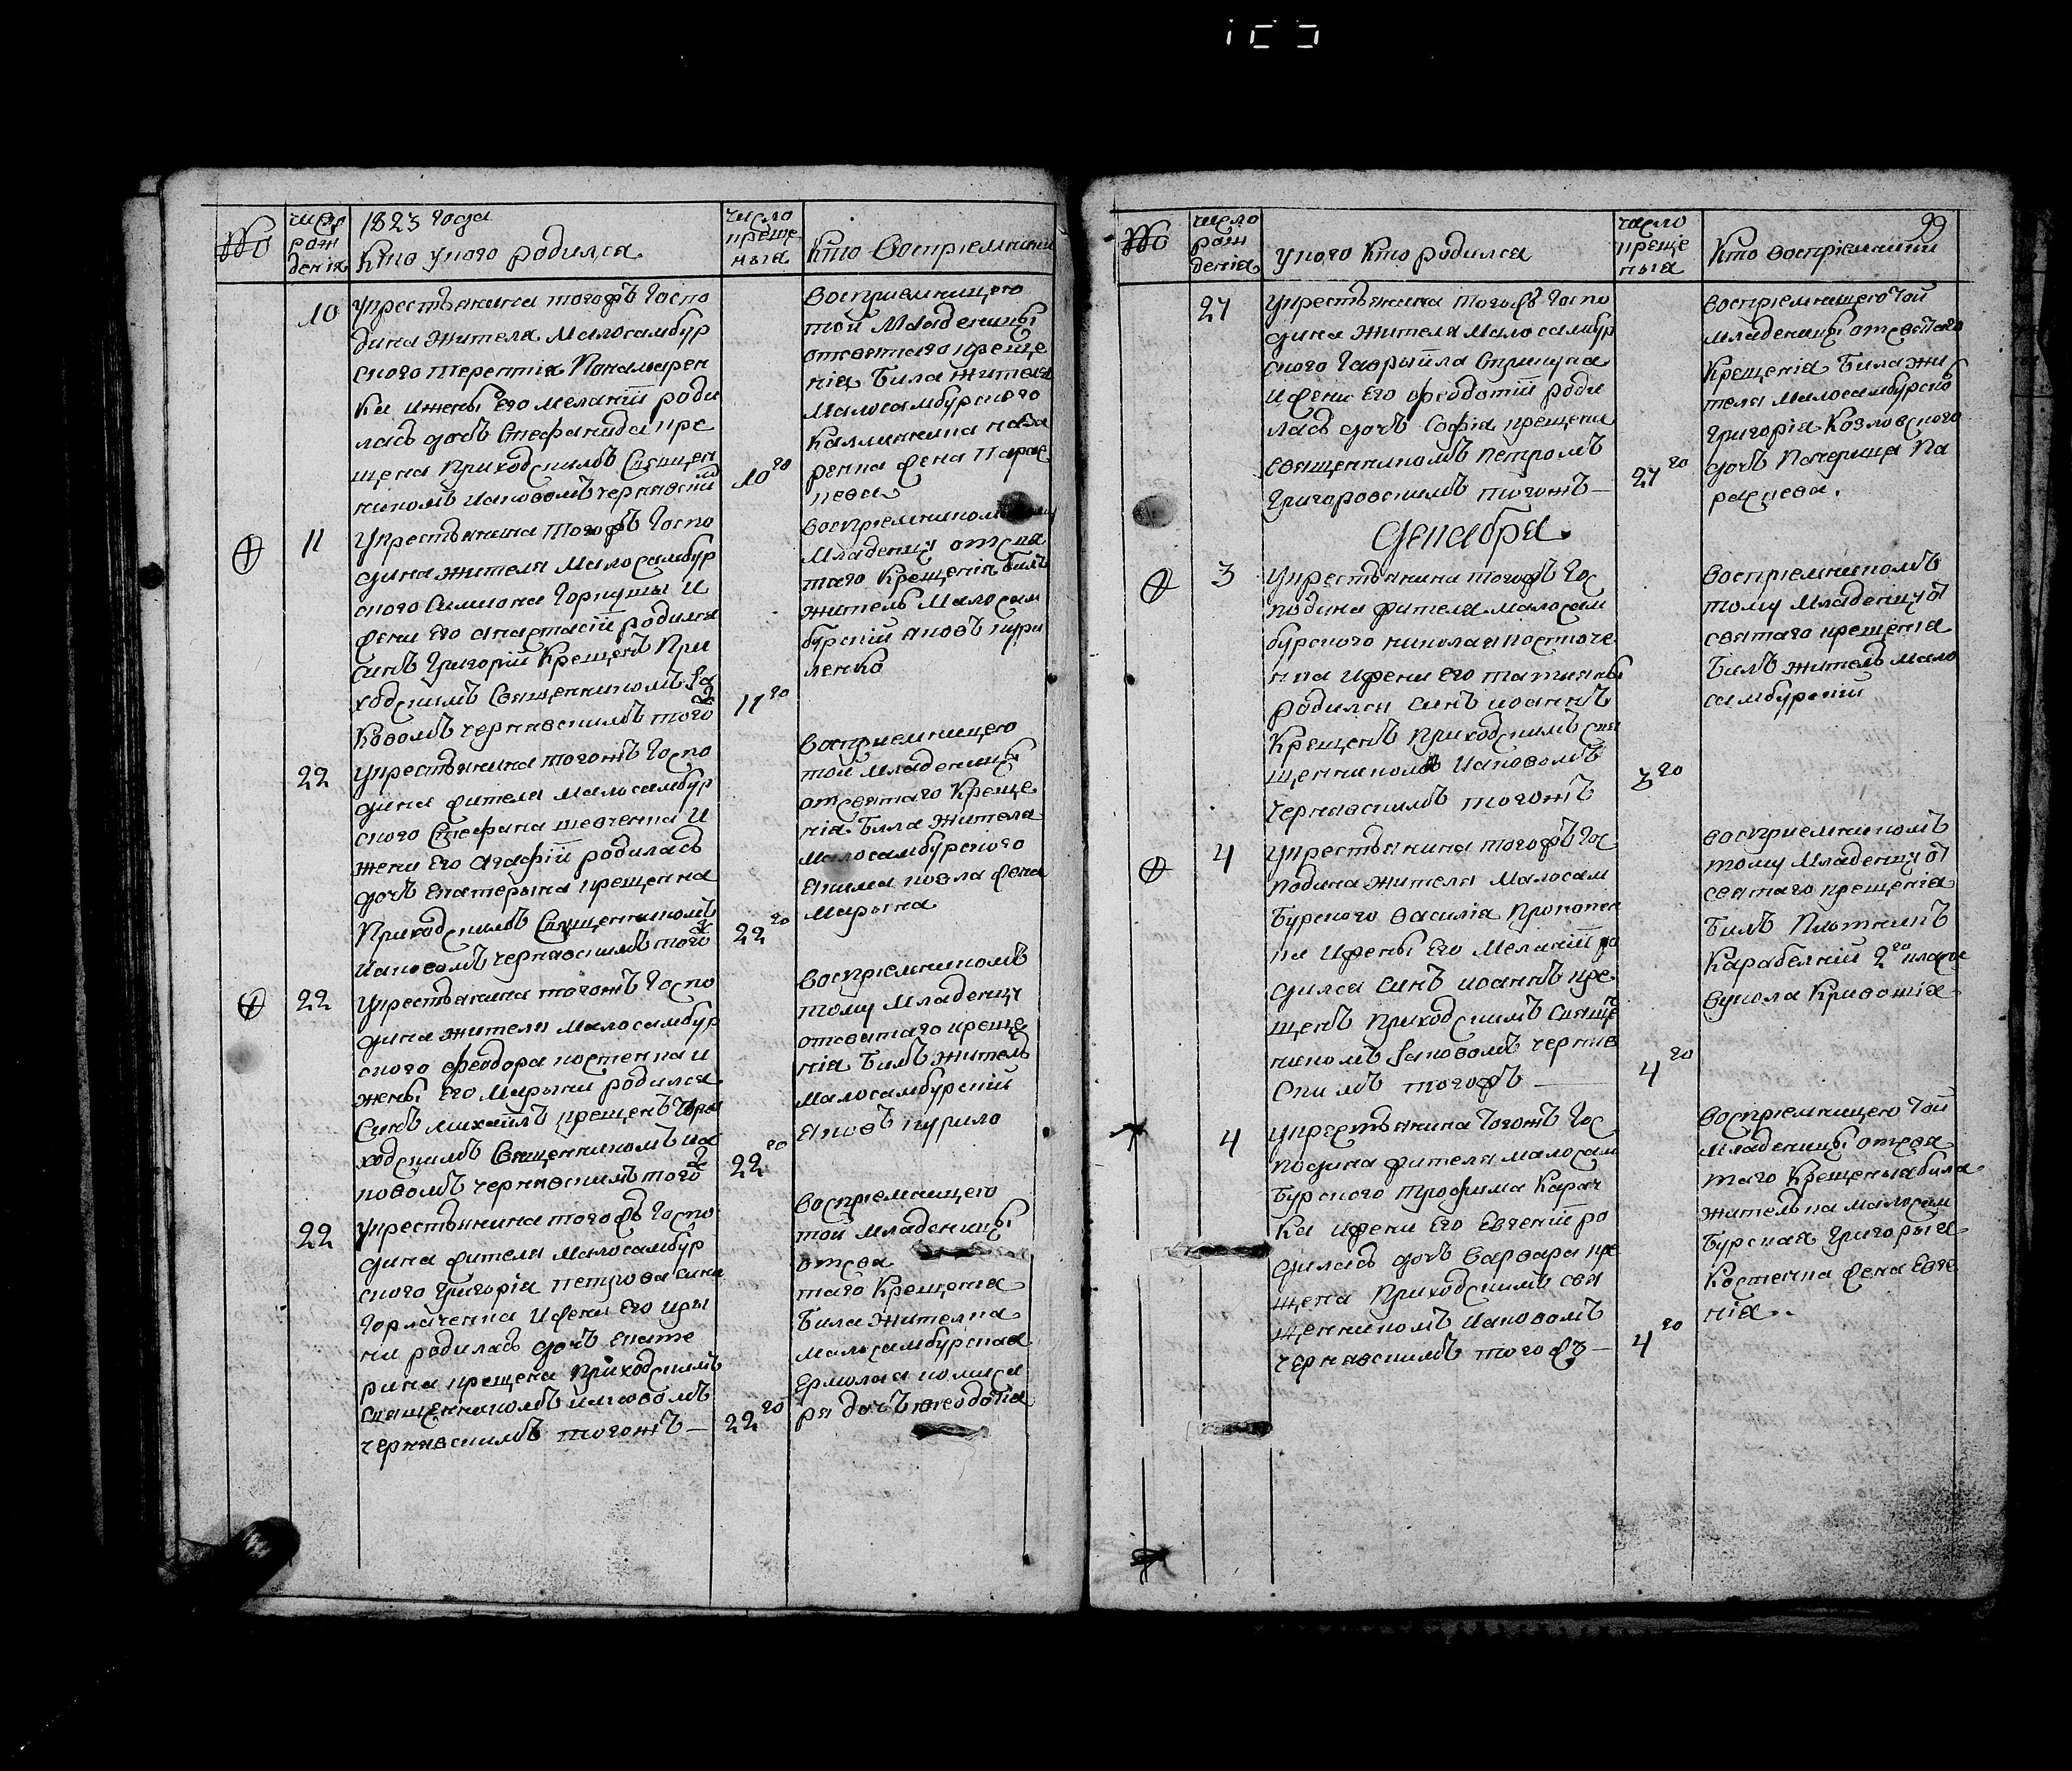 №
число
рож
денія
1823 года
Кто укого родился
число
креще
нья
Кто Восприемники
10
Укрестьянина тогожъ Госпо
дина жителя Малосамбур
ского Терентія Панамарен
ка ижены Его Меланіи роди
лась дочъ Стефанида кре
щена Приходскимъ Священ
никомъ Иаковомъ чернявскі
10го
восприемницею
той Младеницы
отсвятаго креще
нія Била жителя
Малосамбурского
Каллиника
жена Парас
кева
11
Укрестьянина Тогожъ Госпо
дина жителя Малосамбур
ского Симиона Горкуши И
жени Его Анастасіи родился
синъ Григорій Крещенъ При
ходскимъ Священникомъ Іа
Ковомъ чернявскимъ тогож
11го
восприемником
Младенцу отсвя
таго Крещенія билъ
житель Малосам
бурскій Яковъ кури
ленко
22
Укрестьянина тогожъ Госпо
дина жителя Малосамбур
ского Стефана шевченка И
жени Его Агафіи родилась
дочъ Екатерына крещенна
Приходскимъ Священникомъ
Иаковомъ чернявскимъ тогож
22го
восприемницею
той Младеницы
отсвятаго Креще
нія Била жителя
Малосамбурского
Екима ковла жена
Марына
22
Укрестьянина тогожъ Госпо
дина жителя Малосамбур
ского Феодора костенка и
жены Его Марыни родился
Синъ Михаилъ крещенъ При
ходскимъ Священникомъ Иа
ковомъ чернявскимъ тогож
22го
восприемникомъ
тому Младенцу
отсвятаго креще
нія Билъ житель
Малосамбурскій
Яковъ курило
22
Укрестьянина тогожъ Госпо
дина жителя Малосамбур
ского Григорія петрова сина
Горлаченка Ижени Его Иры
ни родилась дочъ Екате
рина крещена Приходскимъ
Священникомъ Иаковомъ
чернявскимъ тогожъ —
22го
восприемницею
той Младеницы
отсвя
таго Крещения
Била жителка
Малосамбурская
Ермолая комиса
ря дочъ Феодотія
99
№
число
рож
денія
Укого Кто родился
число
креще
нья
Кто восприемники
27
Укрестьянина тогожъ Госпо
дина жителя Малосамбур
ского Гаврыила Спрынуна
Ижени Его Феодотіи роди
лась дочъ Софія крещена
священникомъ Петромъ
Григоровскимъ тогожъ —
27го
восприемницею той
младеницы отсвятаго
Крещенія Била жи
теля Малосамбурско
Григорія Козловского
дочъ Пачерица Па
раскева.
Декабря.
3
Укрестьянина тогожъ Гос
подина жителя Малосам
бурского николая костюче
нка Ижени Его татияны
родился синъ Иоаннъ
Крещенъ Приходскимъ свя
щенникомъ Иаковомъ
Чернявскимъ тогожъ
3го
восприемникомъ
тому Младенцу от
святаго крещенія
Билъ житель мало
самбурскій
4
Укрестьянина тогожъ Гос
подина жителя Малосам
Бурского василія Прокопен
ка Ижены Его Меланіи ро
дился синъ Иоаннъ кре
щенъ Приходскимъ Свяще
никомъ Іаковомъ черняв
скимъ тогожъ —
4го
восприемникомъ
тому Младенцу от
святаго крещенія
Билъ Плотникъ
Карабелній 2го класса
вукола Кривошія
4
Укрестьянина Тогожъ Гос
подина жителя малосам
Бурского Трофима Карач
Ка Ижени Его Евгеніи ро
дилась дочъ варвара кре
щена Приходскимъ свя
щенникомъ Иаковомъ
чернявскимъ тогожъ —
4го
Восприемницею Той
Младеницы отсвя
таго Крещенья била
жителька малосам
Бурская Григорыя
Костенка жена Евге
нія..